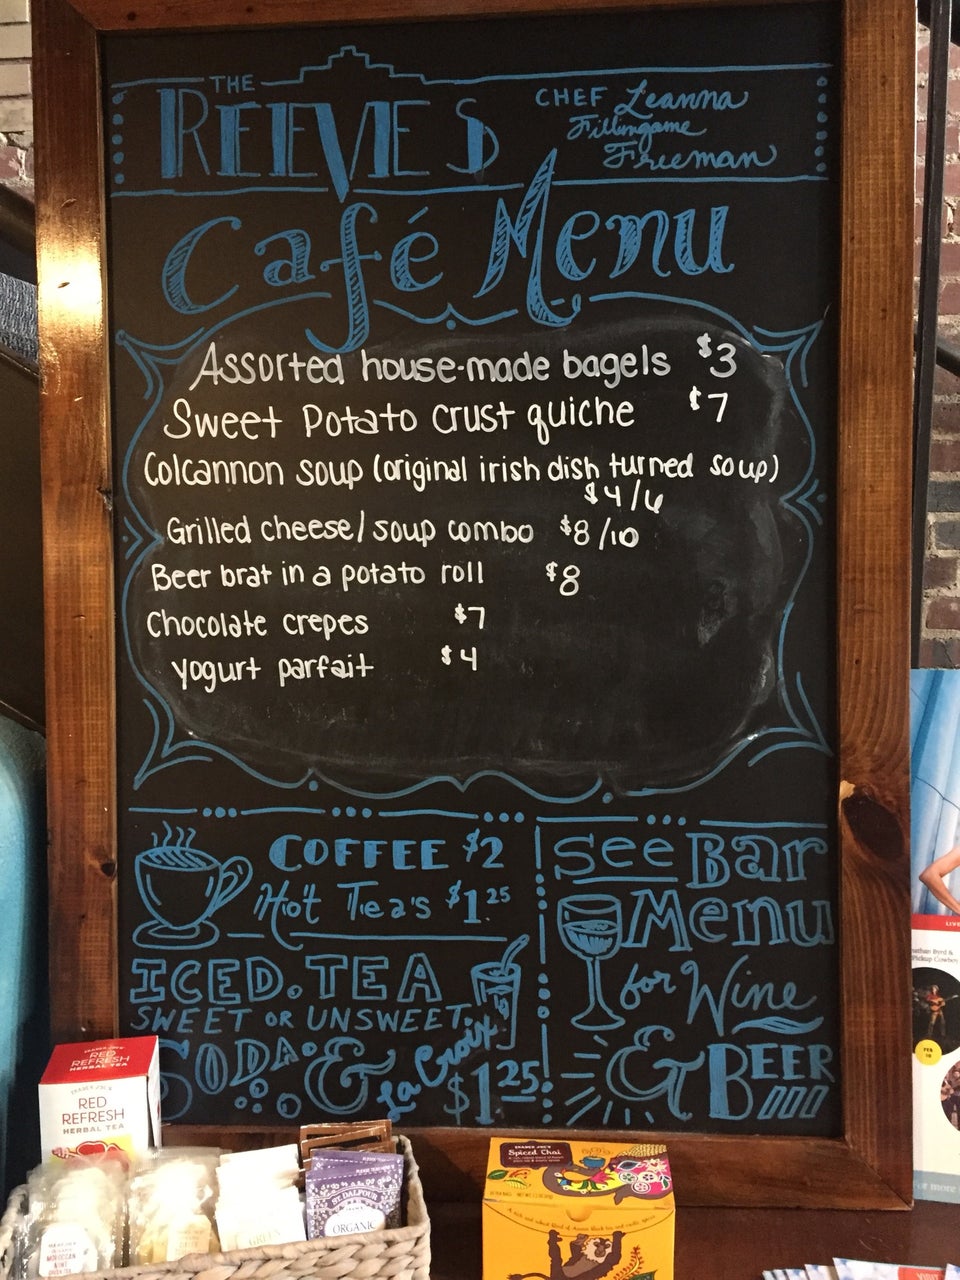 THE
REEVES
CHEF Leanna
Fillingame
Freeman
Café Menu
Assorted house-made bagels $3
Sweet Potato crust quiche $7
Colcannon soup (original irish dish turned soup)
$4/6
Grilled cheese/soup combo $8/10
Beer brat in a potato roll $8
Chocolate crepes $7
Yogurt parfait $4
COFFEE $2
Hot Tea's $1.25
ICED TEA
SWEET OR UNSWEET
SODA & La Croix
$1.25
See Bar
Menu
for Wine
& BEER
RED REFRESH
HERBAL TEA
RED
REFRESH
HERBAL TEA
MOROCCAN
MINT
GREEN
ST. DALFOUR
ORGANIC
TRADER JOE'S
Spiced Chai
Pickup Cowboy
FEB